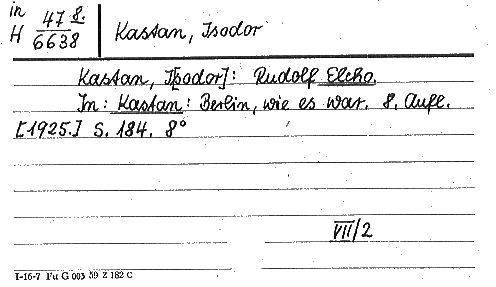 in
H 47 8. Kastan, Isodor
6638
Kastan, I[sodor]: Rudolf Elcho.
In: Kastan: Berlin, wie es war. 8. Aufl.
[1925.] S. 184. 8°
VII/2
I-16-7 Fu G 003 59 Z 182 C